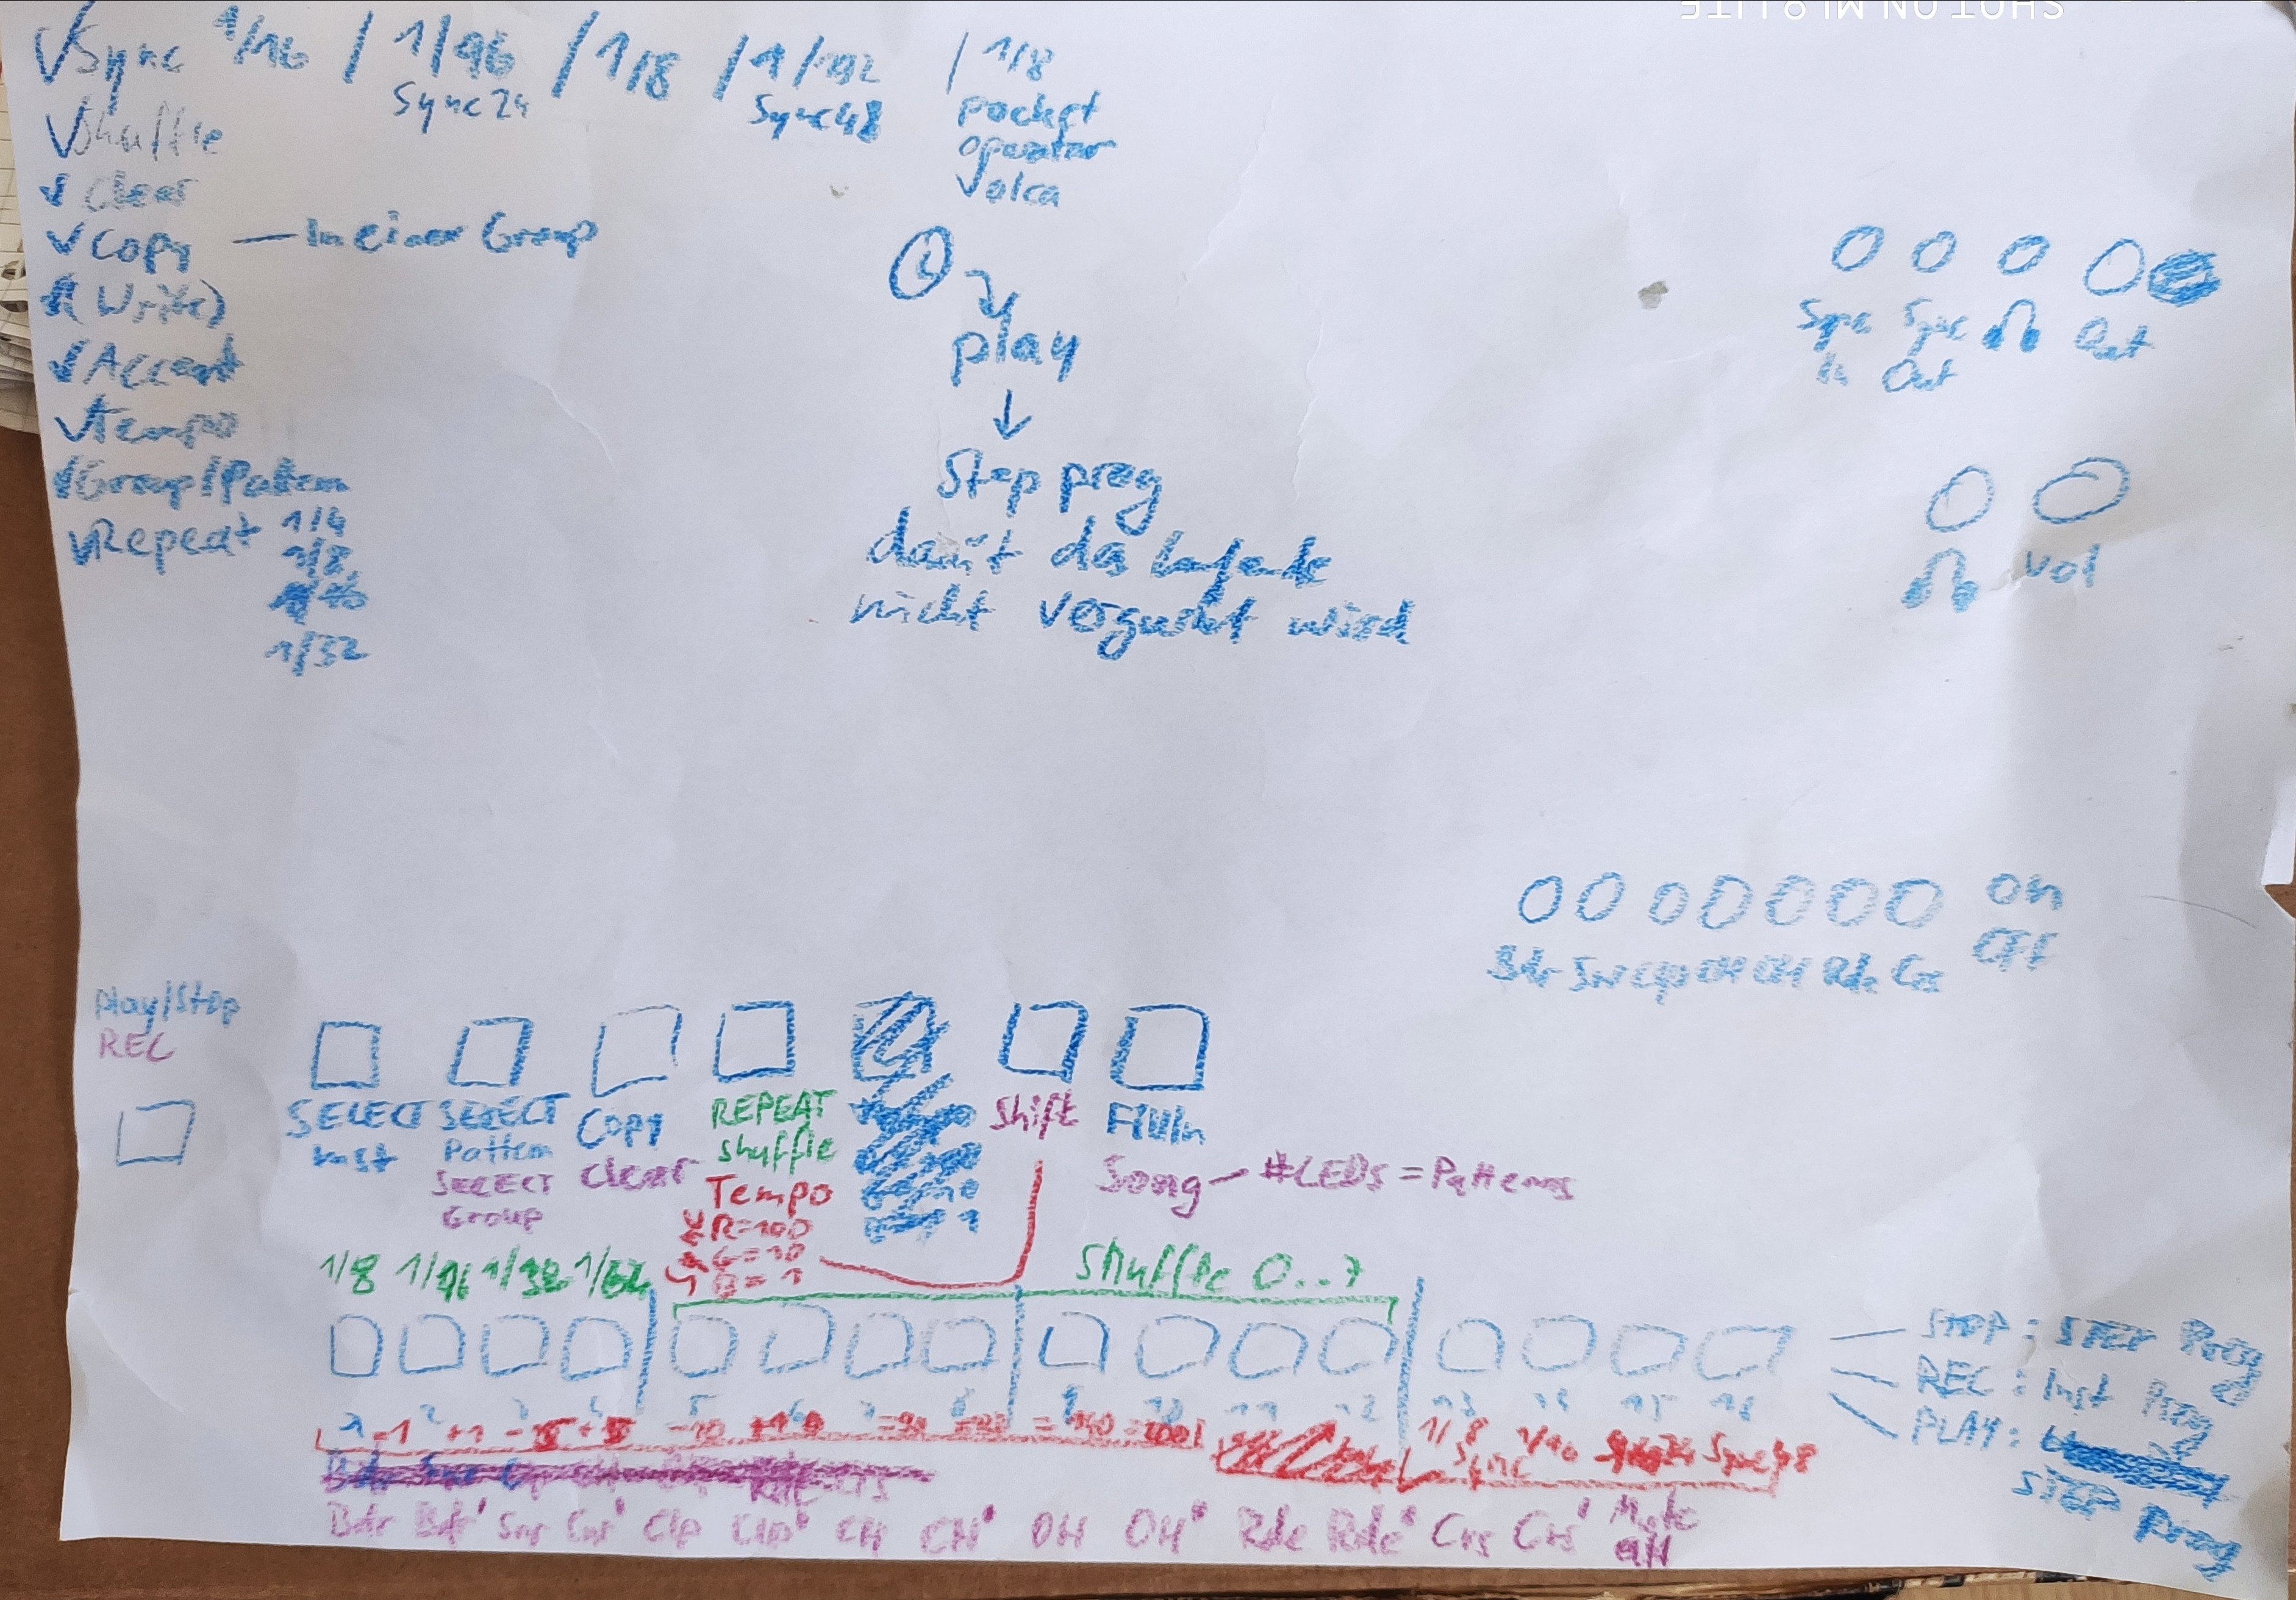 Sync 1/16 / 1/96 / 1/8 / 1/192 / 1/8
Sync24 Sync48 pocket
operator
Volca
Shuffle
Clear
Copy — In einer Group
(Write)
Accent
Tempo
Group/Pattern
Repeat 1/4
1/8
1/16
1/32
play
↓
Step prog
damit das laufende
nicht vergurkt wird
Sync In
Sync Out
Out
Vol
On
Off
Bdr Snr Clp CH OH Rde Crs
Play/Stop
REC
SELECT
Inst
SELECT
Pattern
SELECT
Group
Copy
Clear
REPEAT
Shuffle
Tempo
R=100
G=10
B=1
Shift
FillIn
Song – #LEDs = Patterns
1/8 1/16 1/32 1/64
Shuffle 0..7
1 2 3 4 5 6 7 8 9 10 11 12 13 14 15 16
-1 +1 -5 +5 -10 +10
1/8 1/16 Sync24 Sync48
Sync
Bdr Bdr' Snr Snr' Clp Clp' CH CH' OH OH' Rde Rde' Crs Crs' Mute
all
STOP: STEP Prog
REC: Inst Prog
PLAY:
STEP Prog
SHOT ON MI 8 LITE